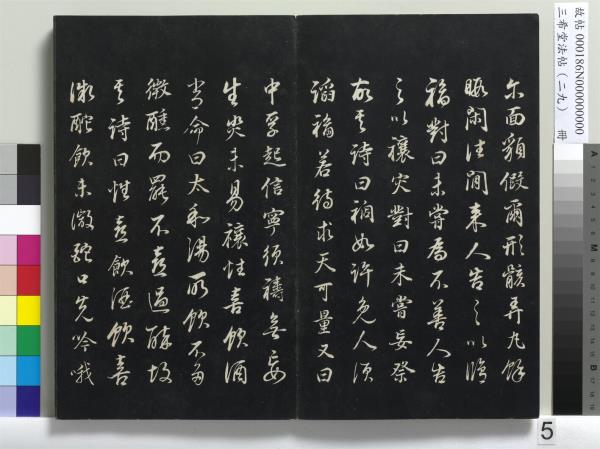 故帖 000186N000000000
三希堂法帖(二九) 冊
尓面貌假爾形骸弄丸餘
暇閑往閒来人告之以脩
福對曰未嘗為不善人告
之以禳灾對曰未嘗妄祭
故其詩曰禍如許免人須
謟福若待求天可量又曰
中孚起信寧須禱無妄
生災未易禳性喜飲酒
嘗命曰太和湯所飲不多
微醺而罷不喜過醉故
其詩曰性喜飲酒飲喜
微酡飲未微酡口先吟哦
5